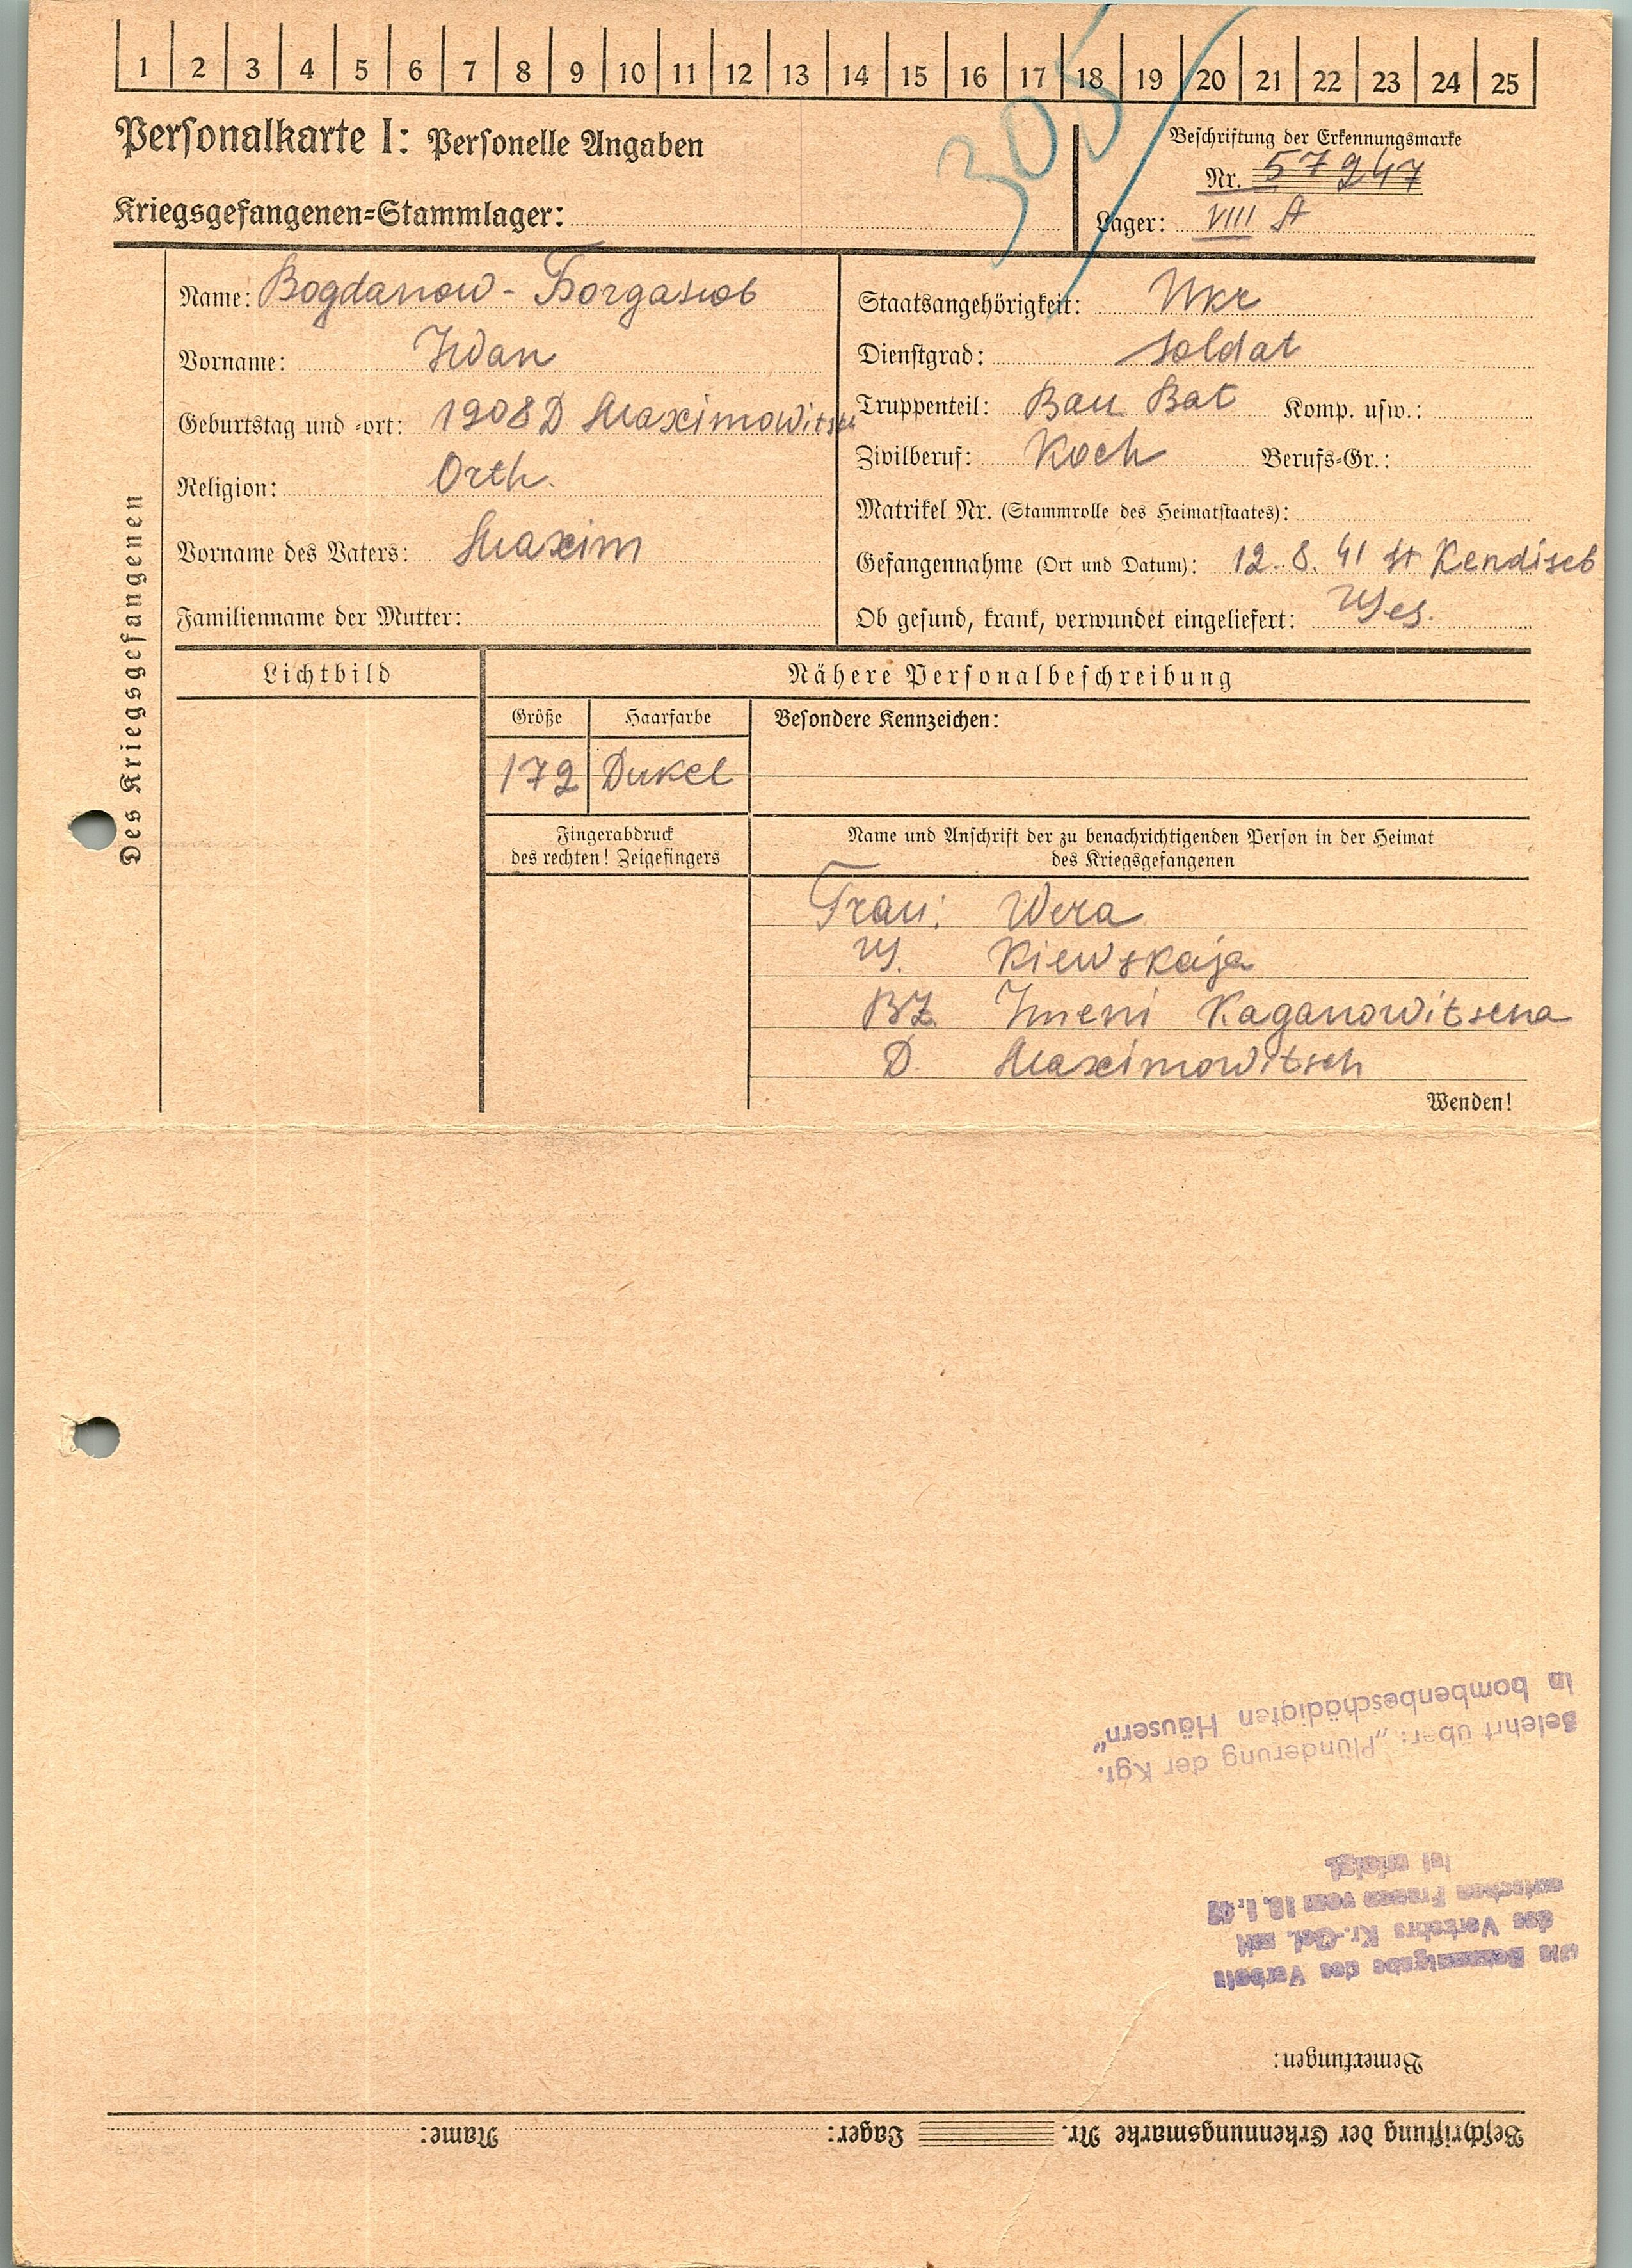 1 2 3 4 5 6 7 8 9 10 11 12 13 14 15 16 17 18 19 20 21 22 23 24 25
305
Personalkarte I: Personelle Angaben
Kriegsgefangenen-Stammlager:
Beschriftung der Erkennungsmarke
Nr. 57247
Lager: VIII A
Des Kriegsgefangenen
Name: Bogdanow - Богданов
Vorname: Iwan
Geburtstag und -ort: 1908 D Maximowitsch
Religion: Orth.
Vorname des Vaters: Maxim
Familienname der Mutter:
Staatsangehörigkeit: Ukr
Dienstgrad: Soldat
Truppenteil: Bau Bat Komp. usw.:
Zivilberuf: Koch Berufs-Gr.:
Matrikel Nr. (Stammrolle des Heimatstaates):
Gefangennahme (Ort und Datum): 12. 8. 41 St
Ob gesund, krank, verwundet eingeliefert:
Lichtbild
Nähere Personalbeschreibung
Größe Haarfarbe Besondere Kennzeichen:
172 Dukel
Fingerabdruck
des rechten! Zeigefingers
Name und Anschrift der zu benachrichtigenden Person in der Heimat
des Kriegsgefangenen
Frau: Wera
Kiewskaja
Imeni Kaganowitscha
D. Maximowitsch
Wenden!
Beschriftung der Erkennungsmarke Nr. Lager: Name:
Bemerkungen:
Die Bekanntgabe des Verbots
des Verkehrs Kr.-Gef. mit
deutschen Frauen vom 10. 1. 40
ist erfolgt.
Belehrt über: „Plünderung der Kgf.
in bombenbeschädigten Häusern"